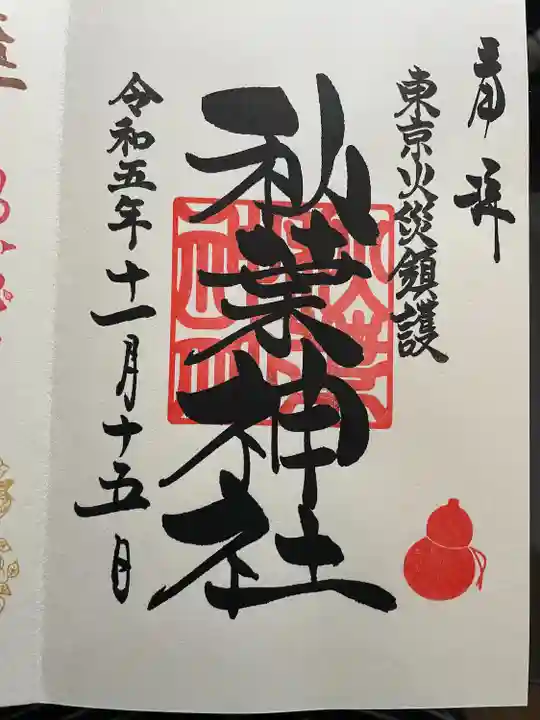 奉拝
東京火災鎮護
秋葉神社
令和五年十一月十五日